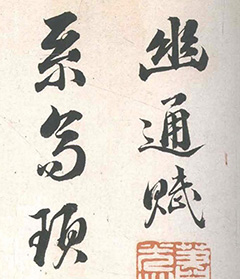 幽通賦
系高頊